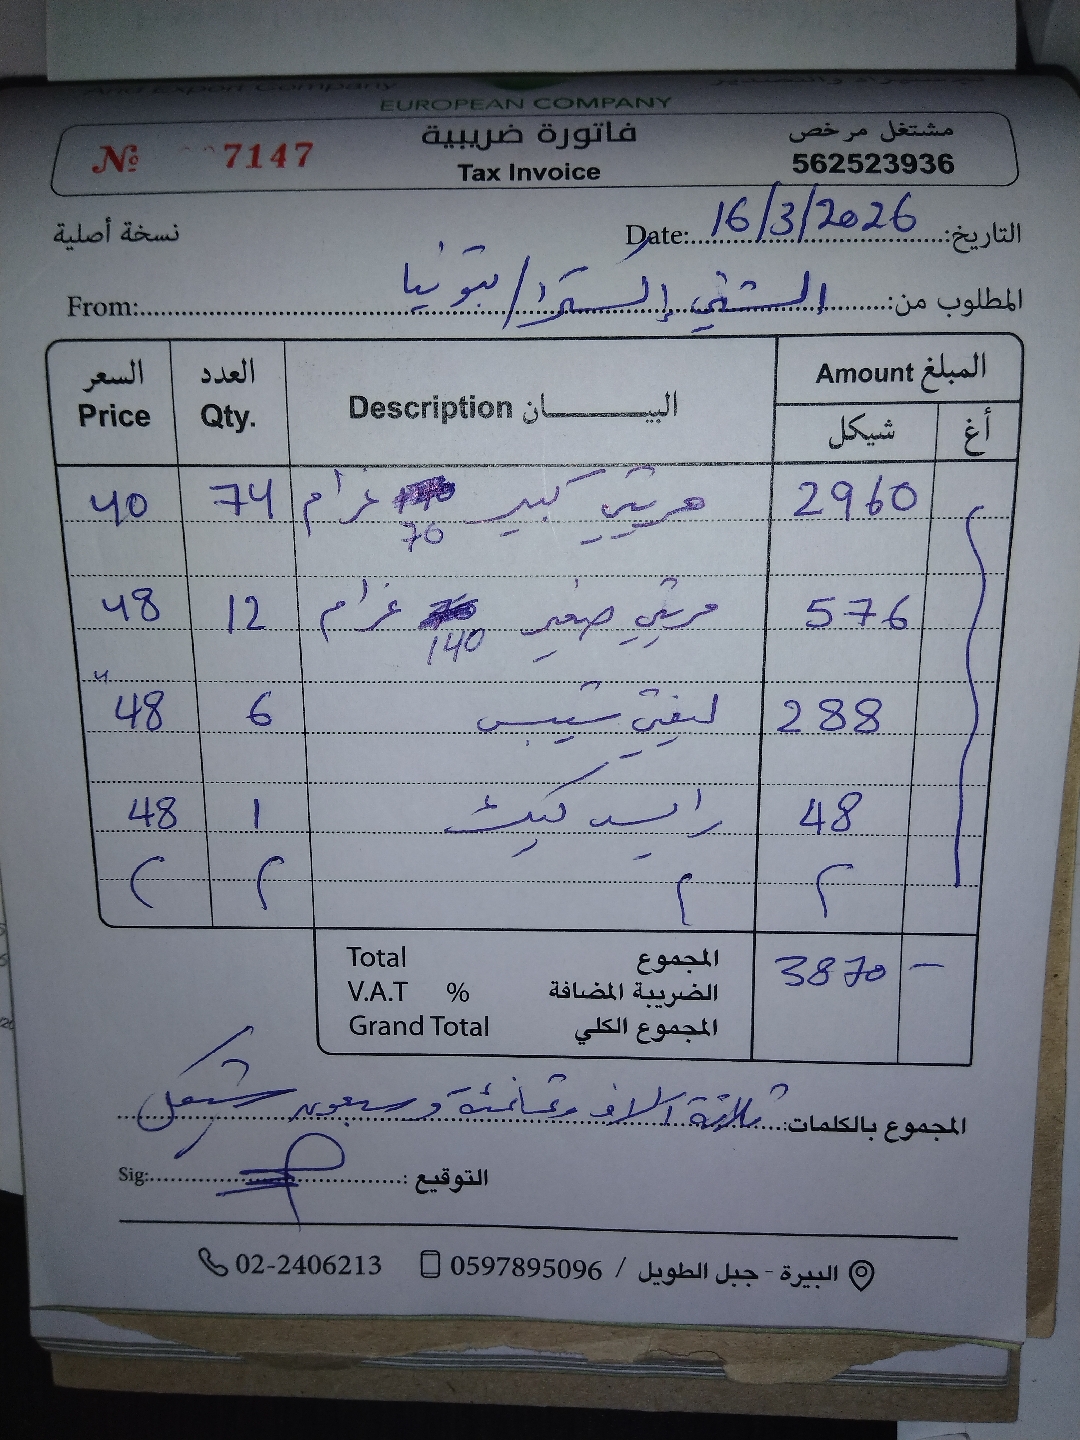 And Export Company للإستيراد والتصدير
EUROPEAN COMPANY
№ 7147 فاتورة ضريبية مشتغل مرخص
Tax Invoice 562523936
نسخة أصلية Date: 16/3/2026 التاريخ:
From: الشني إكسترا / بتونيا المطلوب من:
السعر العدد البيــــــان Description المبلغ Amount
Price Qty. شيكل أغ
40 74 هريتي كبير غرام 2960
70
48 12 هريتي صغير غرام 576
140
48 6 ليفتي شيبس 288
48 1 رايس كيك 48
Total المجموع 3870 -
V.A.T % الضريبة المضافة
Grand Total المجموع الكلي
المجموع بالكلمات: ثلاثة آلاف وثمانمئة وسبعون شيكل
Sig: التوقيع :
02-2406213 0597895096 / البيرة - جبل الطويل